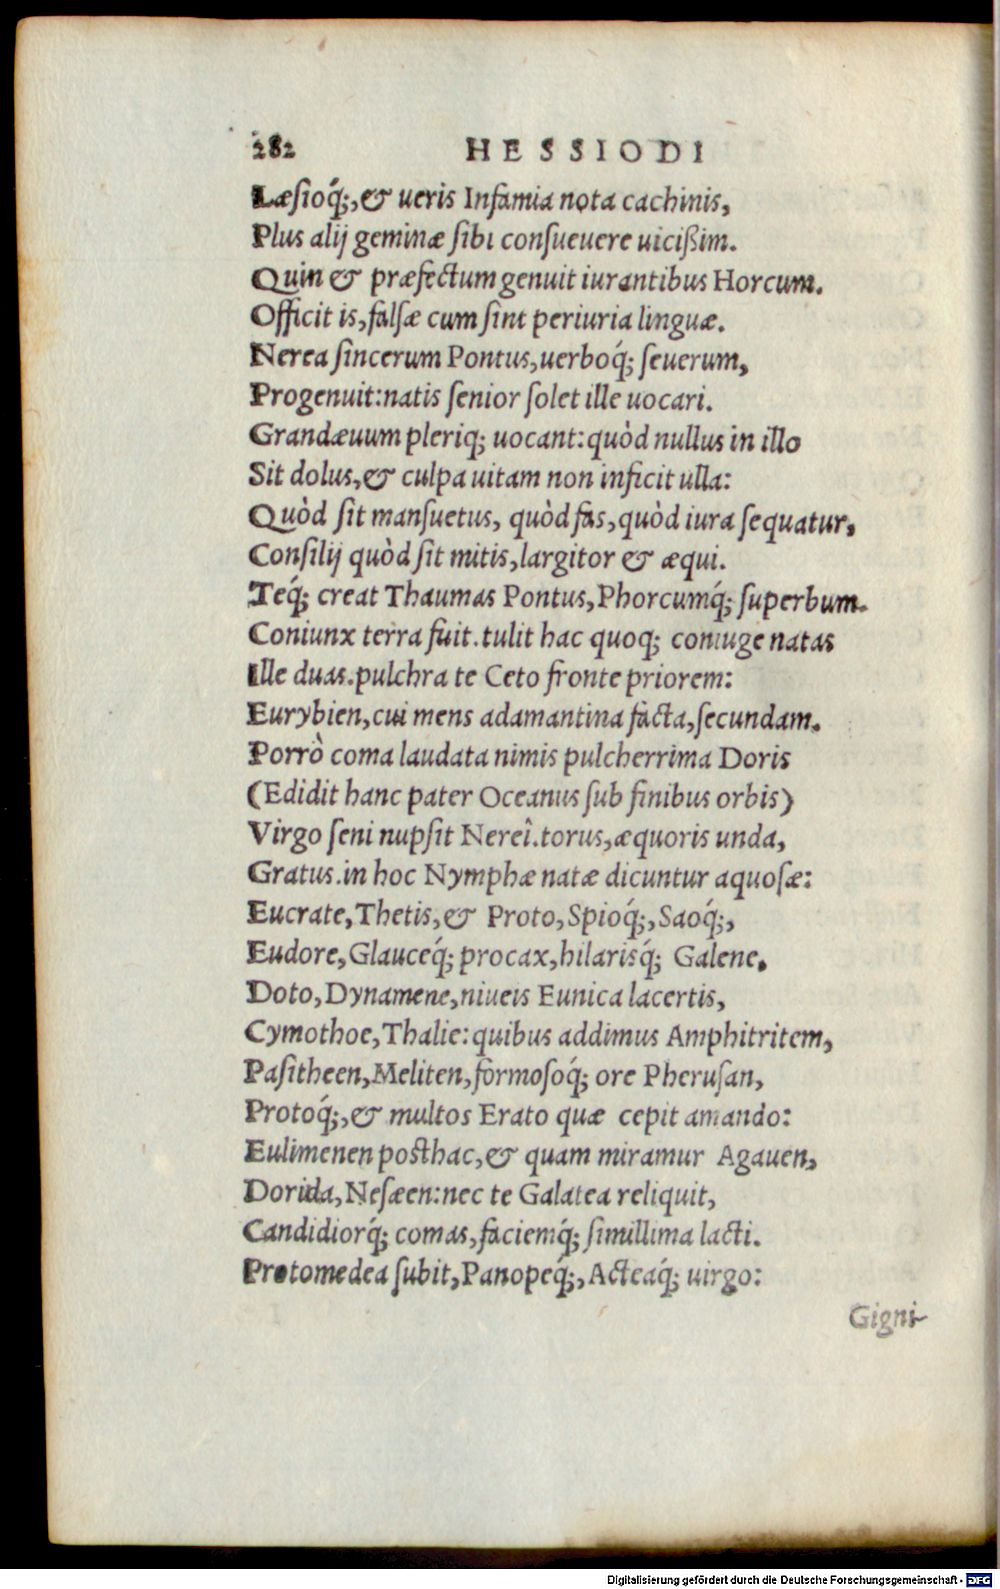 282 HESSIODI
Læſioq́;,& ueris Infamia nota cachinis,
Plus alij geminæ ſibi conſueuere uicißim.
Quin & præfectum genuit iurantibus Horcum.
Officit is,falſæ cum ſint periuria linguæ.
Nerea ſincerum Pontus,uerboq́; ſeuerum,
Progenuit:natis ſenior ſolet ille uocari.
Grandæuum pleriq; uocant:quòd nullus in illo
Sit dolus,& culpa uitam non inficit ulla:
Quòd ſit manſuetus, quòd fas,quòd iura ſequatur,
Conſilij quòd ſit mitis,largitor & æqui.
Teq́; creat Thaumas Pontus,Phorcumq́; ſuperbum.
Coniunx terra fuit.tulit hac quoq; coniuge natas
Ille duas.pulchra te Ceto fronte priorem:
Eurybien,cui mens adamantina facta,ſecundam.
Porrò coma laudata nimis pulcherrima Doris
(Edidit hanc pater Oceanus ſub finibus orbis)
Virgo ſeni nupſit Nereî.torus,æquoris unda,
Gratus.in hoc Nymphæ natæ dicuntur aquoſæ:
Eucrate,Thetis,& Proto,Spioq́;,Saoq́;,
Eudore,Glauceq́; procax,hilarisq́; Galene.
Doto,Dynamene,niueis Eunica lacertis,
Cymothoe,Thalie:quibus addimus Amphitritem,
Paſitheen,Meliten,formoſoq́; ore Pheruſan,
Protoq́;,& multos Erato quæ cepit amando:
Eulimenen posthac,& quam miramur Agauen,
Dorida,Neſæen:nec te Galatea reliquit,
Candidiorq́; comas,faciemq́; ſimillima lacti.
Protomedea ſubit,Panopeq́;,Acteaq́; uirgo:
Gigni-
Digitalisierung gefördert durch die Deutsche Forschungsgemeinschaft - DFG